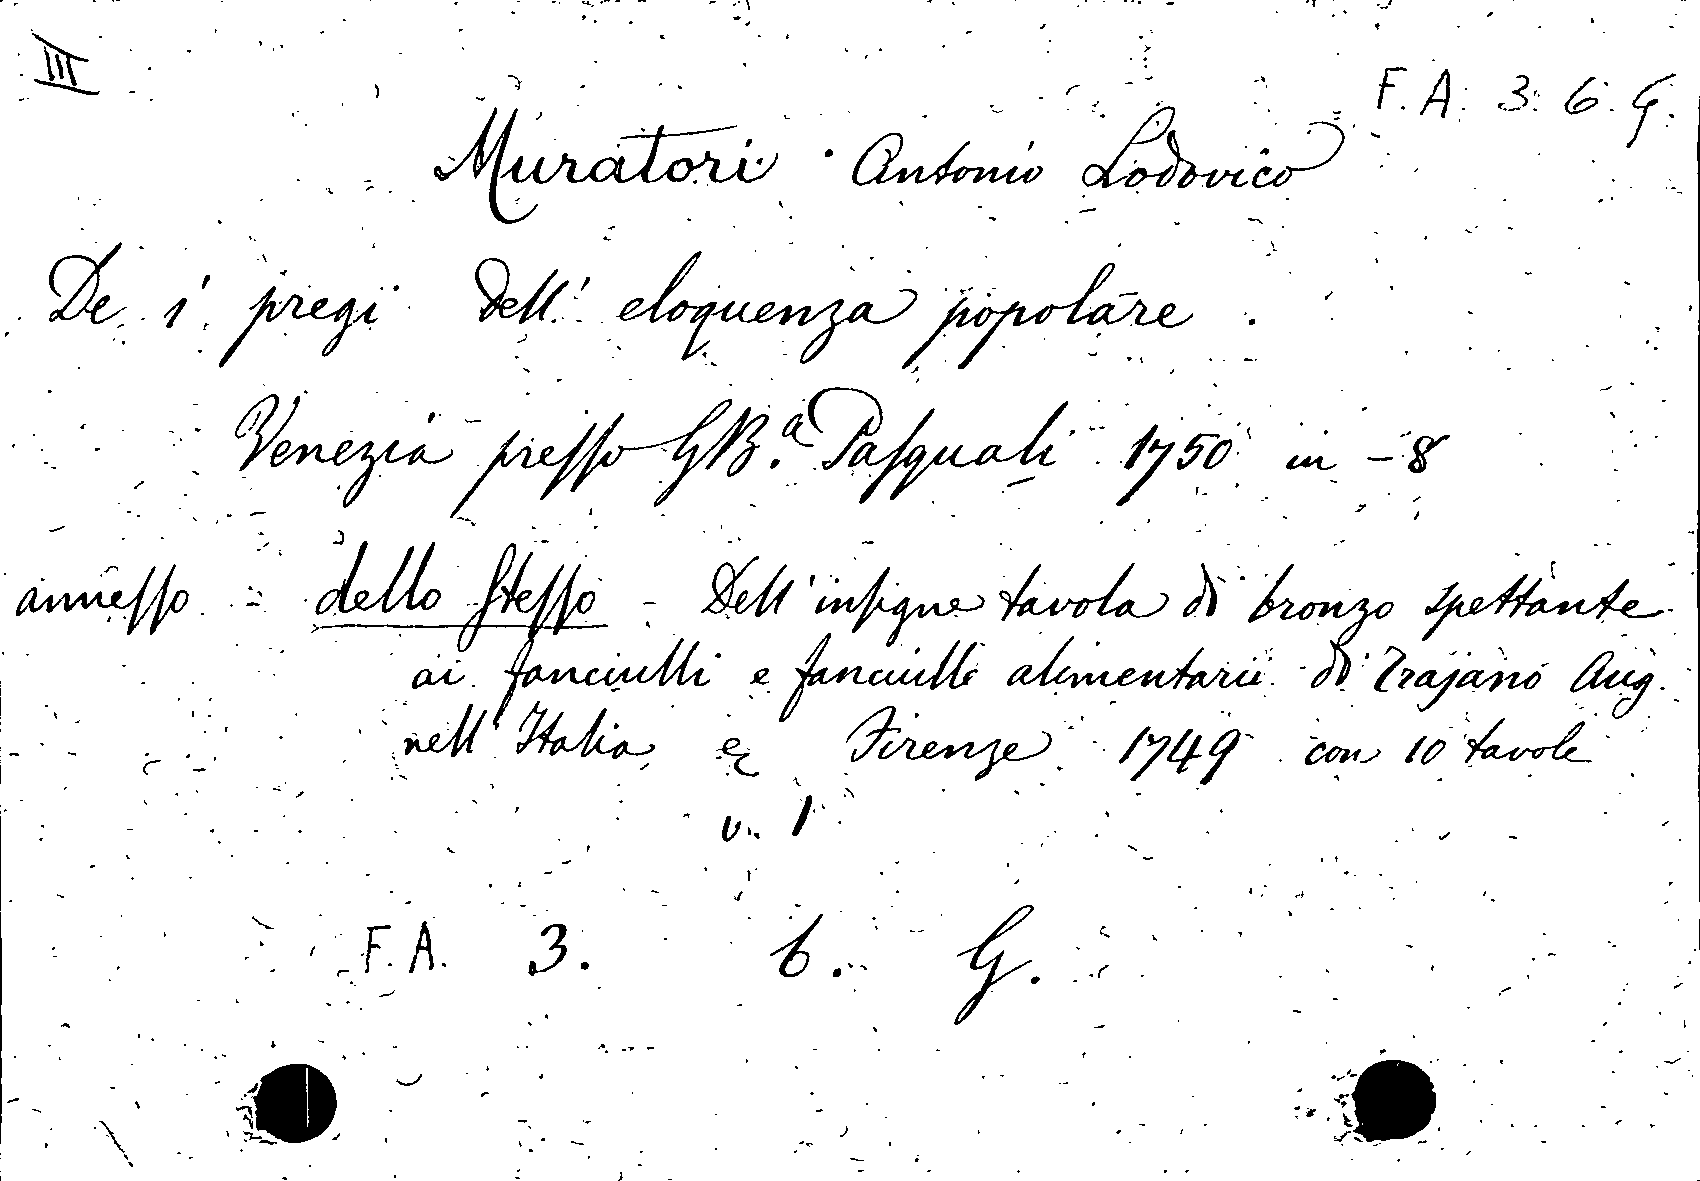 III
F. A. 3. 6. G.
Muratori Antonio Lodovico
De i pregi dell' eloquenza popolare.
Venezia presso GB.a Pasquali 1750 in - 8
annesso - dello Stesso - Dell' insigne tavola di bronzo spettante
ai fanciulli e fanciulle alimentarii di Trajano Aug.
nell' Italia Firenze 1749 con 10 tavole
v. 1
F. A. 3. 6. G.